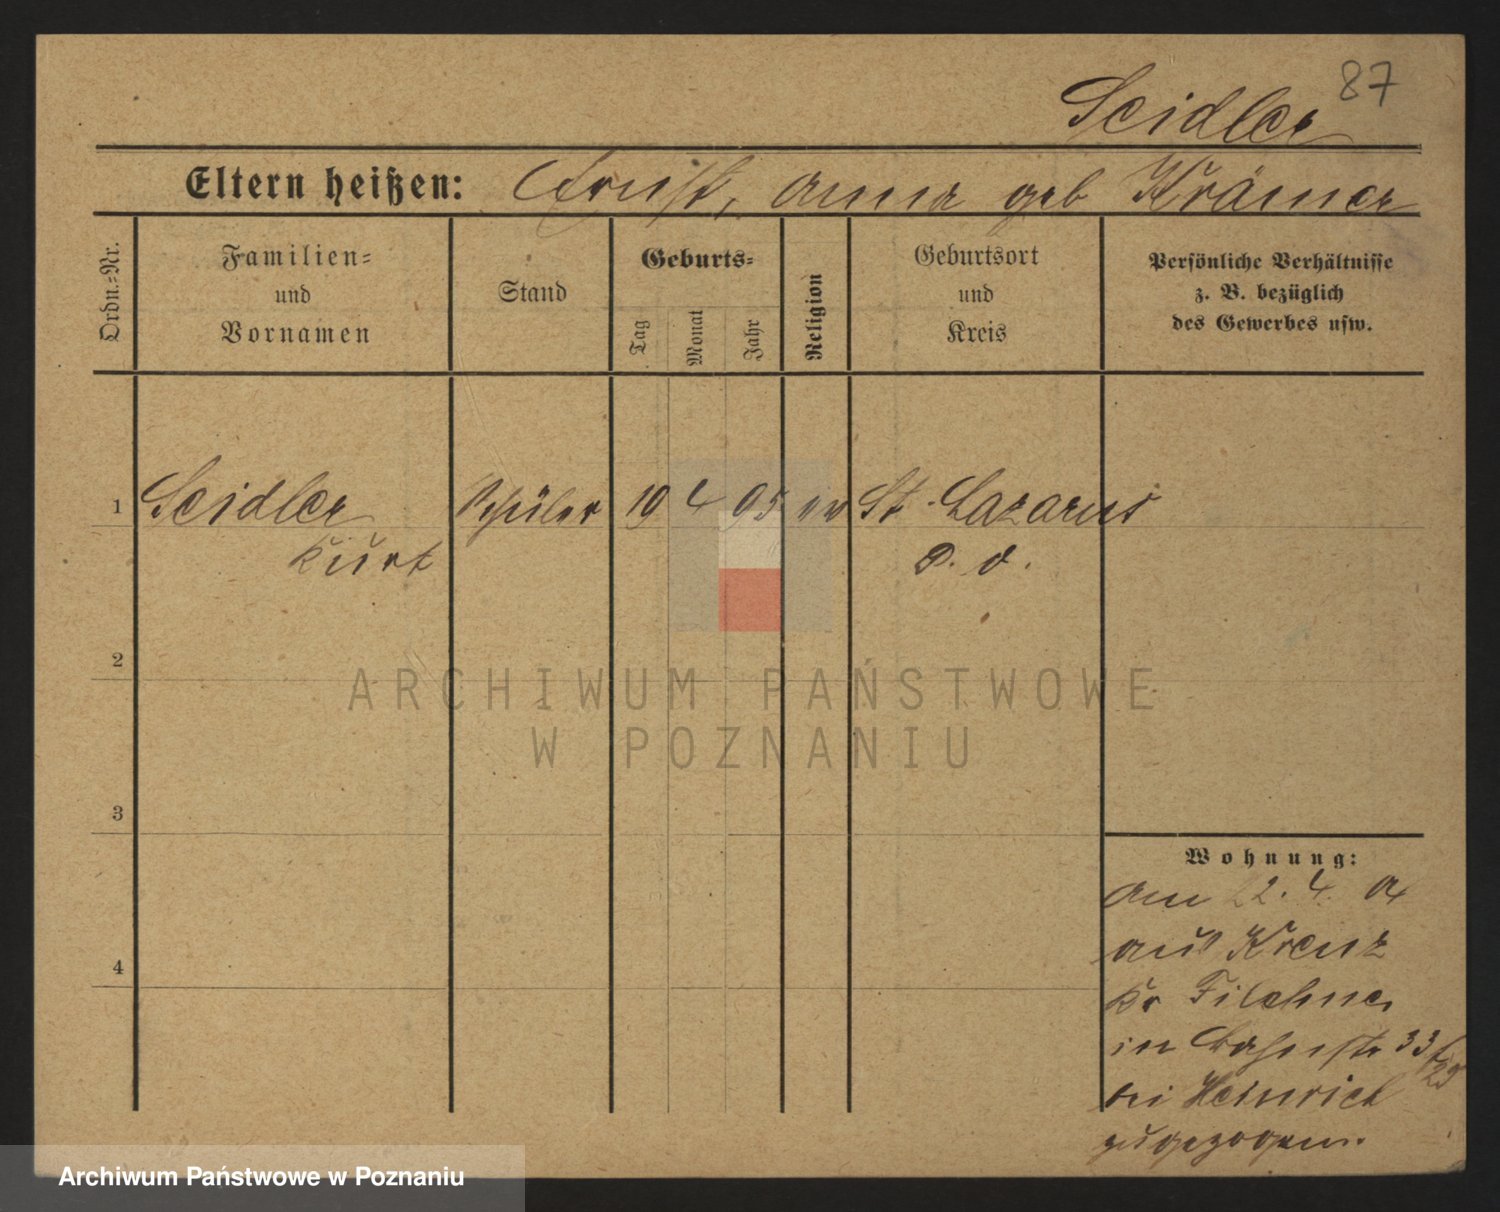 87
Seidler
Eltern heißen: Ernst, Anna geb Krämer
Ordn.-Nr.
Familien-
und
Vornamen
Stand
Geburts-
Tag
Monat
Jahr
Religion
Geburtsort
und
Kreis
Persönliche Verhältnisse
z. B. bezüglich
des Gewerbes usw.
1 Seidler Schüler 19 4 95 ev St. Lazarus
Kurt
2
3
4
Wohnung:
am 22. 4.
aus Kreuz
Kr Filehne
in 33
bei Heinrich
zugezogen.
ARCHIWUM PAŃSTWOWE
W POZNANIU
Archiwum Państwowe w Poznaniu